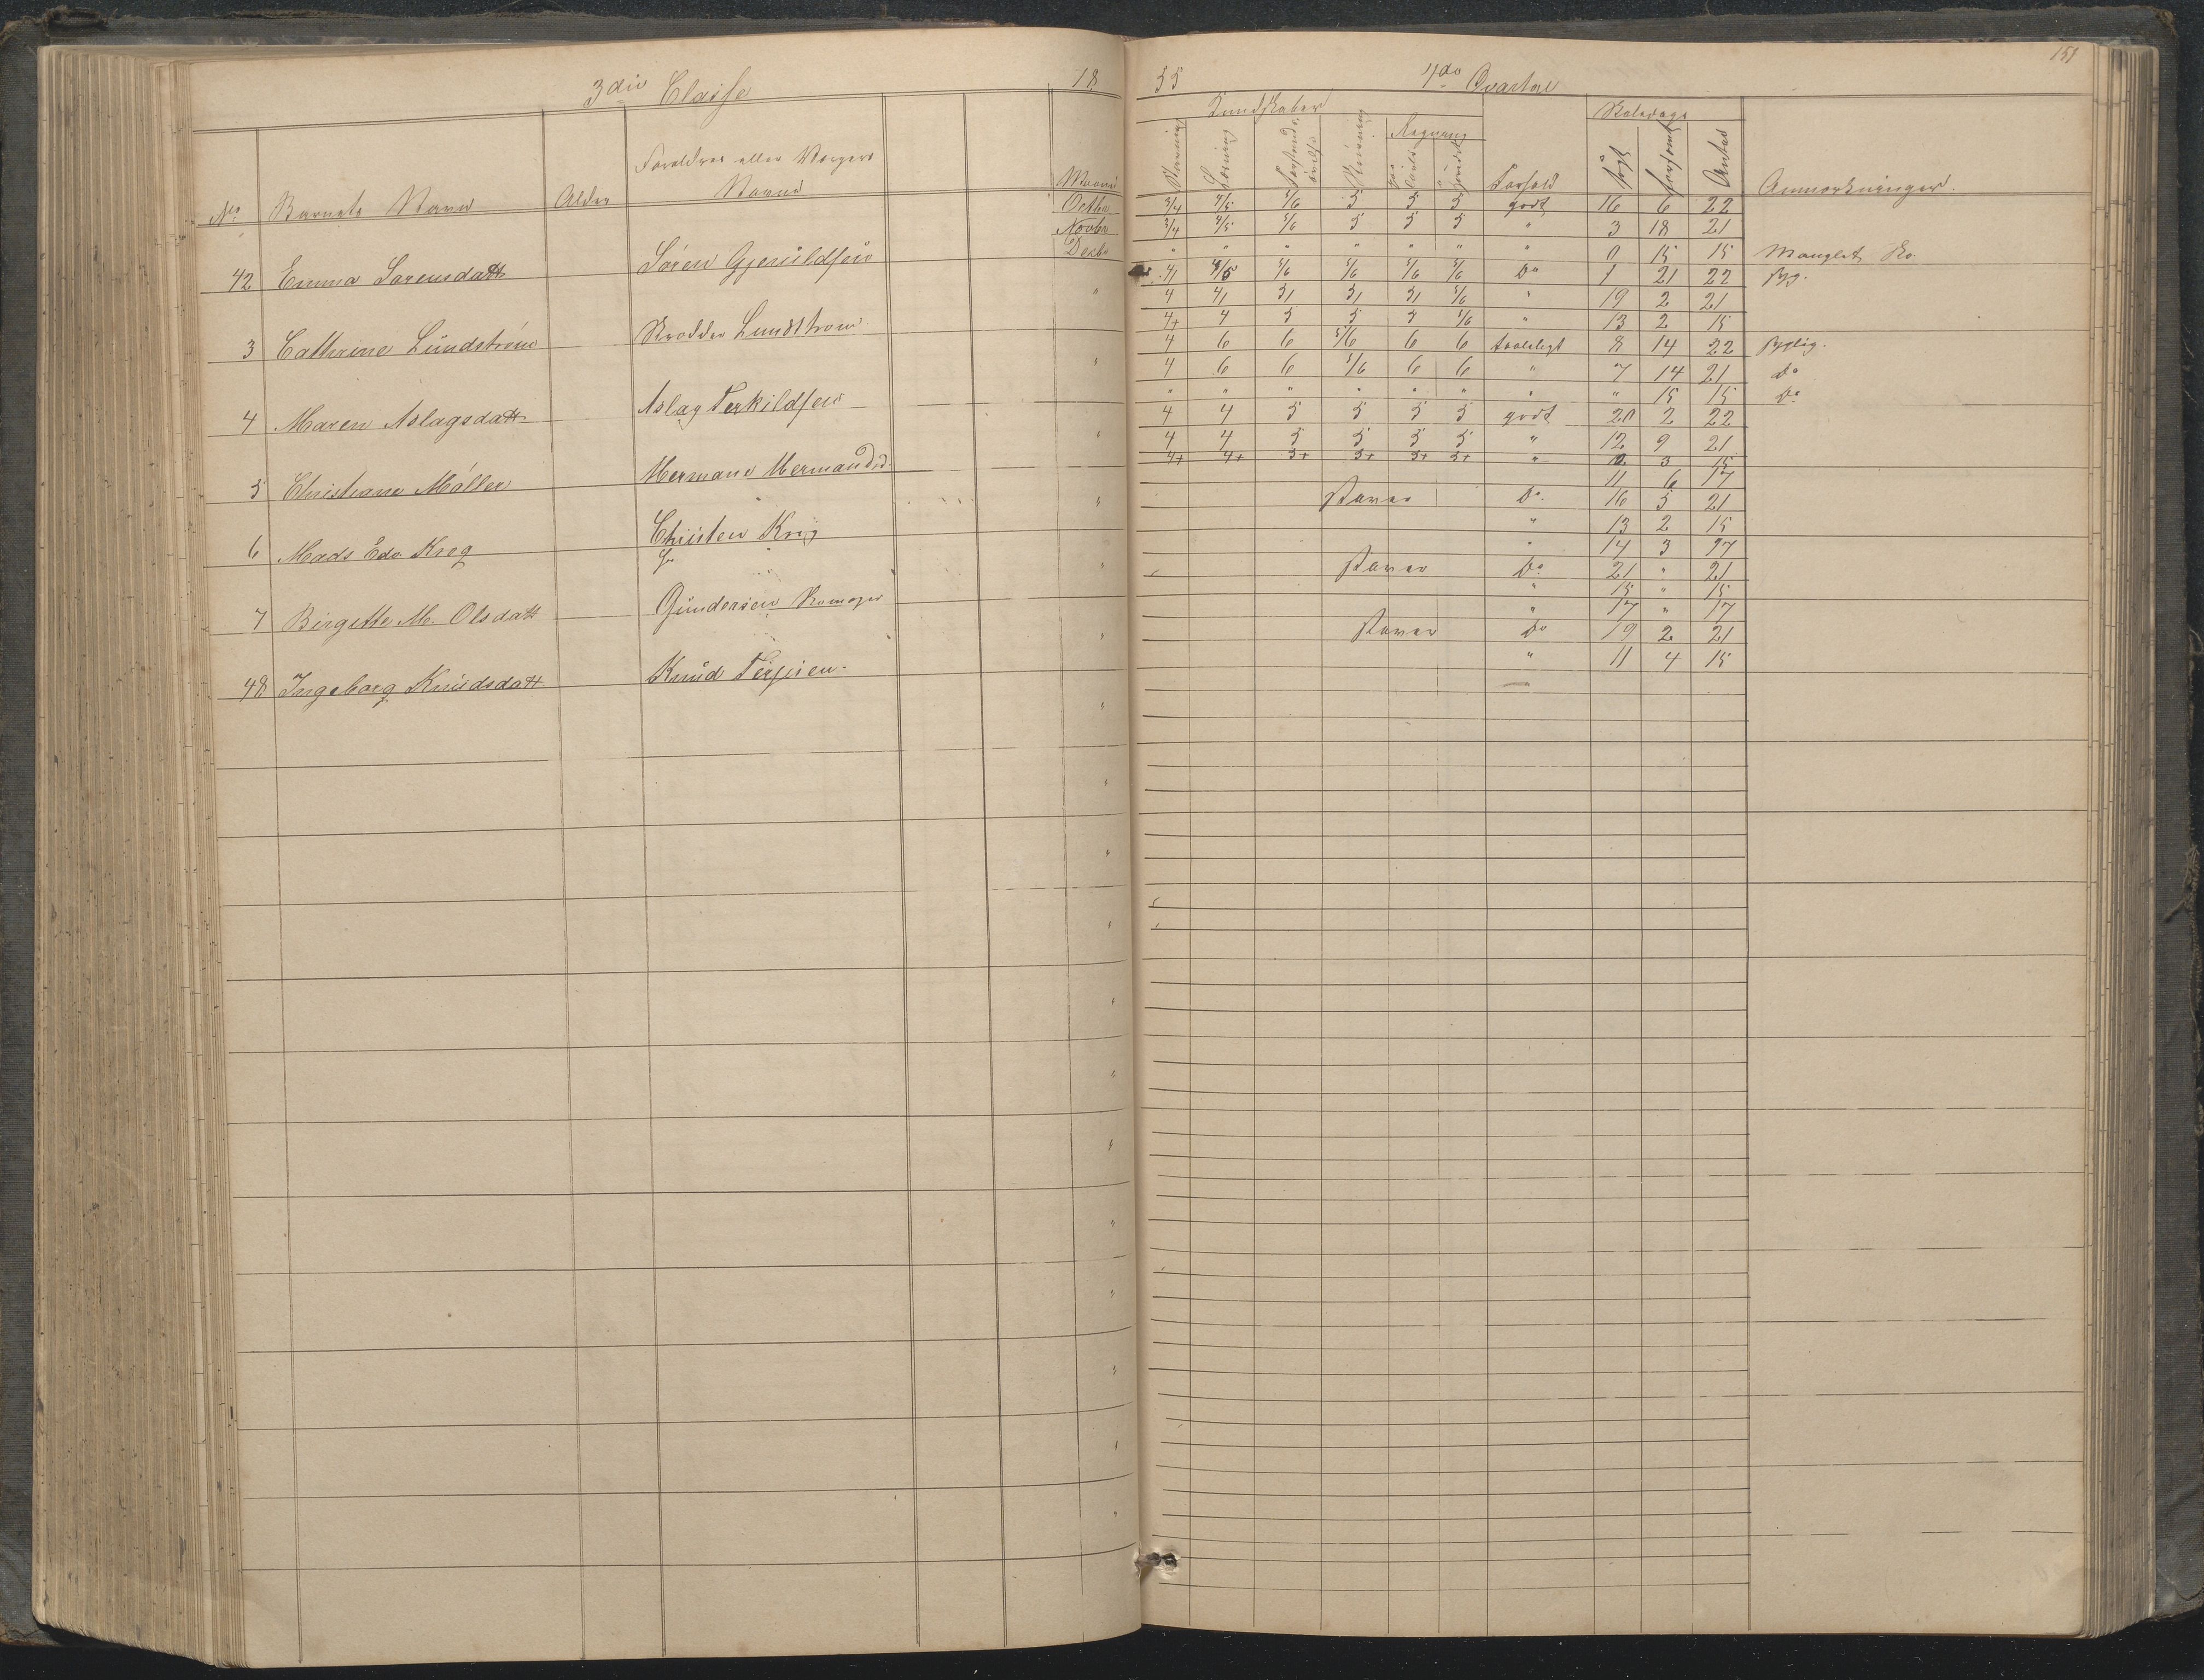 151
3die Classe 18 55 4de Qvartal
Kundskaber Skoledage
Regning
No Barnets Navn Alder Forældres eller Værgers Navne Maaned Skrivning Læsning Forstands øvelse Skrivning Forhold søgt forsømt Antal Anmærkninger.
Octbr 3/4 4/5 5/6 5 5 5 godt 16 6 22
Novbr 3/4 4/5 5/6 5 5 5 " 3 18 21
42 Emma Sørensdatt Søren Gjeruldsen Decbr " " " " " " " 0 15 15 Manglet Sko
4/5 5/6 5/6 5/6 5/6 Do 1 21 22 syg.
4 19 2 21
3 Cathrine Lundstrøm Skrædder Lundstrøm " 4+ 4 5 5 5 5/6 " 13 2 15
4 6 6 5/6 6 6 taaleligt 8 14 22 sygelig.
4 6 6 5/6 6 6 " 7 14 21 do
4 Maren Aslagsdatt Aslag Terkildsen " " " " " " " " " 15 15 Do
4 4 5 5 5 5 godt 20 2 22
4 4 5 5 5 5 " 12 9 21
5 Christiane Møller Hermane Hermandsd " 4+ 4+ 5+ 5+ 5+ 5+ " 12 3 15
11 6 17
staver Do. 16 5 21
6 Mads Edv Kreg Christen Krig " " 13 2 15
" 14 3 17
staver Do. 21 " 21
7 Birgitte M. Olsdatt Gundersen Skomager " " 15 " 15
" 17 " 17
staver Do 19 2 21
48 Ingeborg Knudsdatt Knud Terjesen. " " 11 4 15